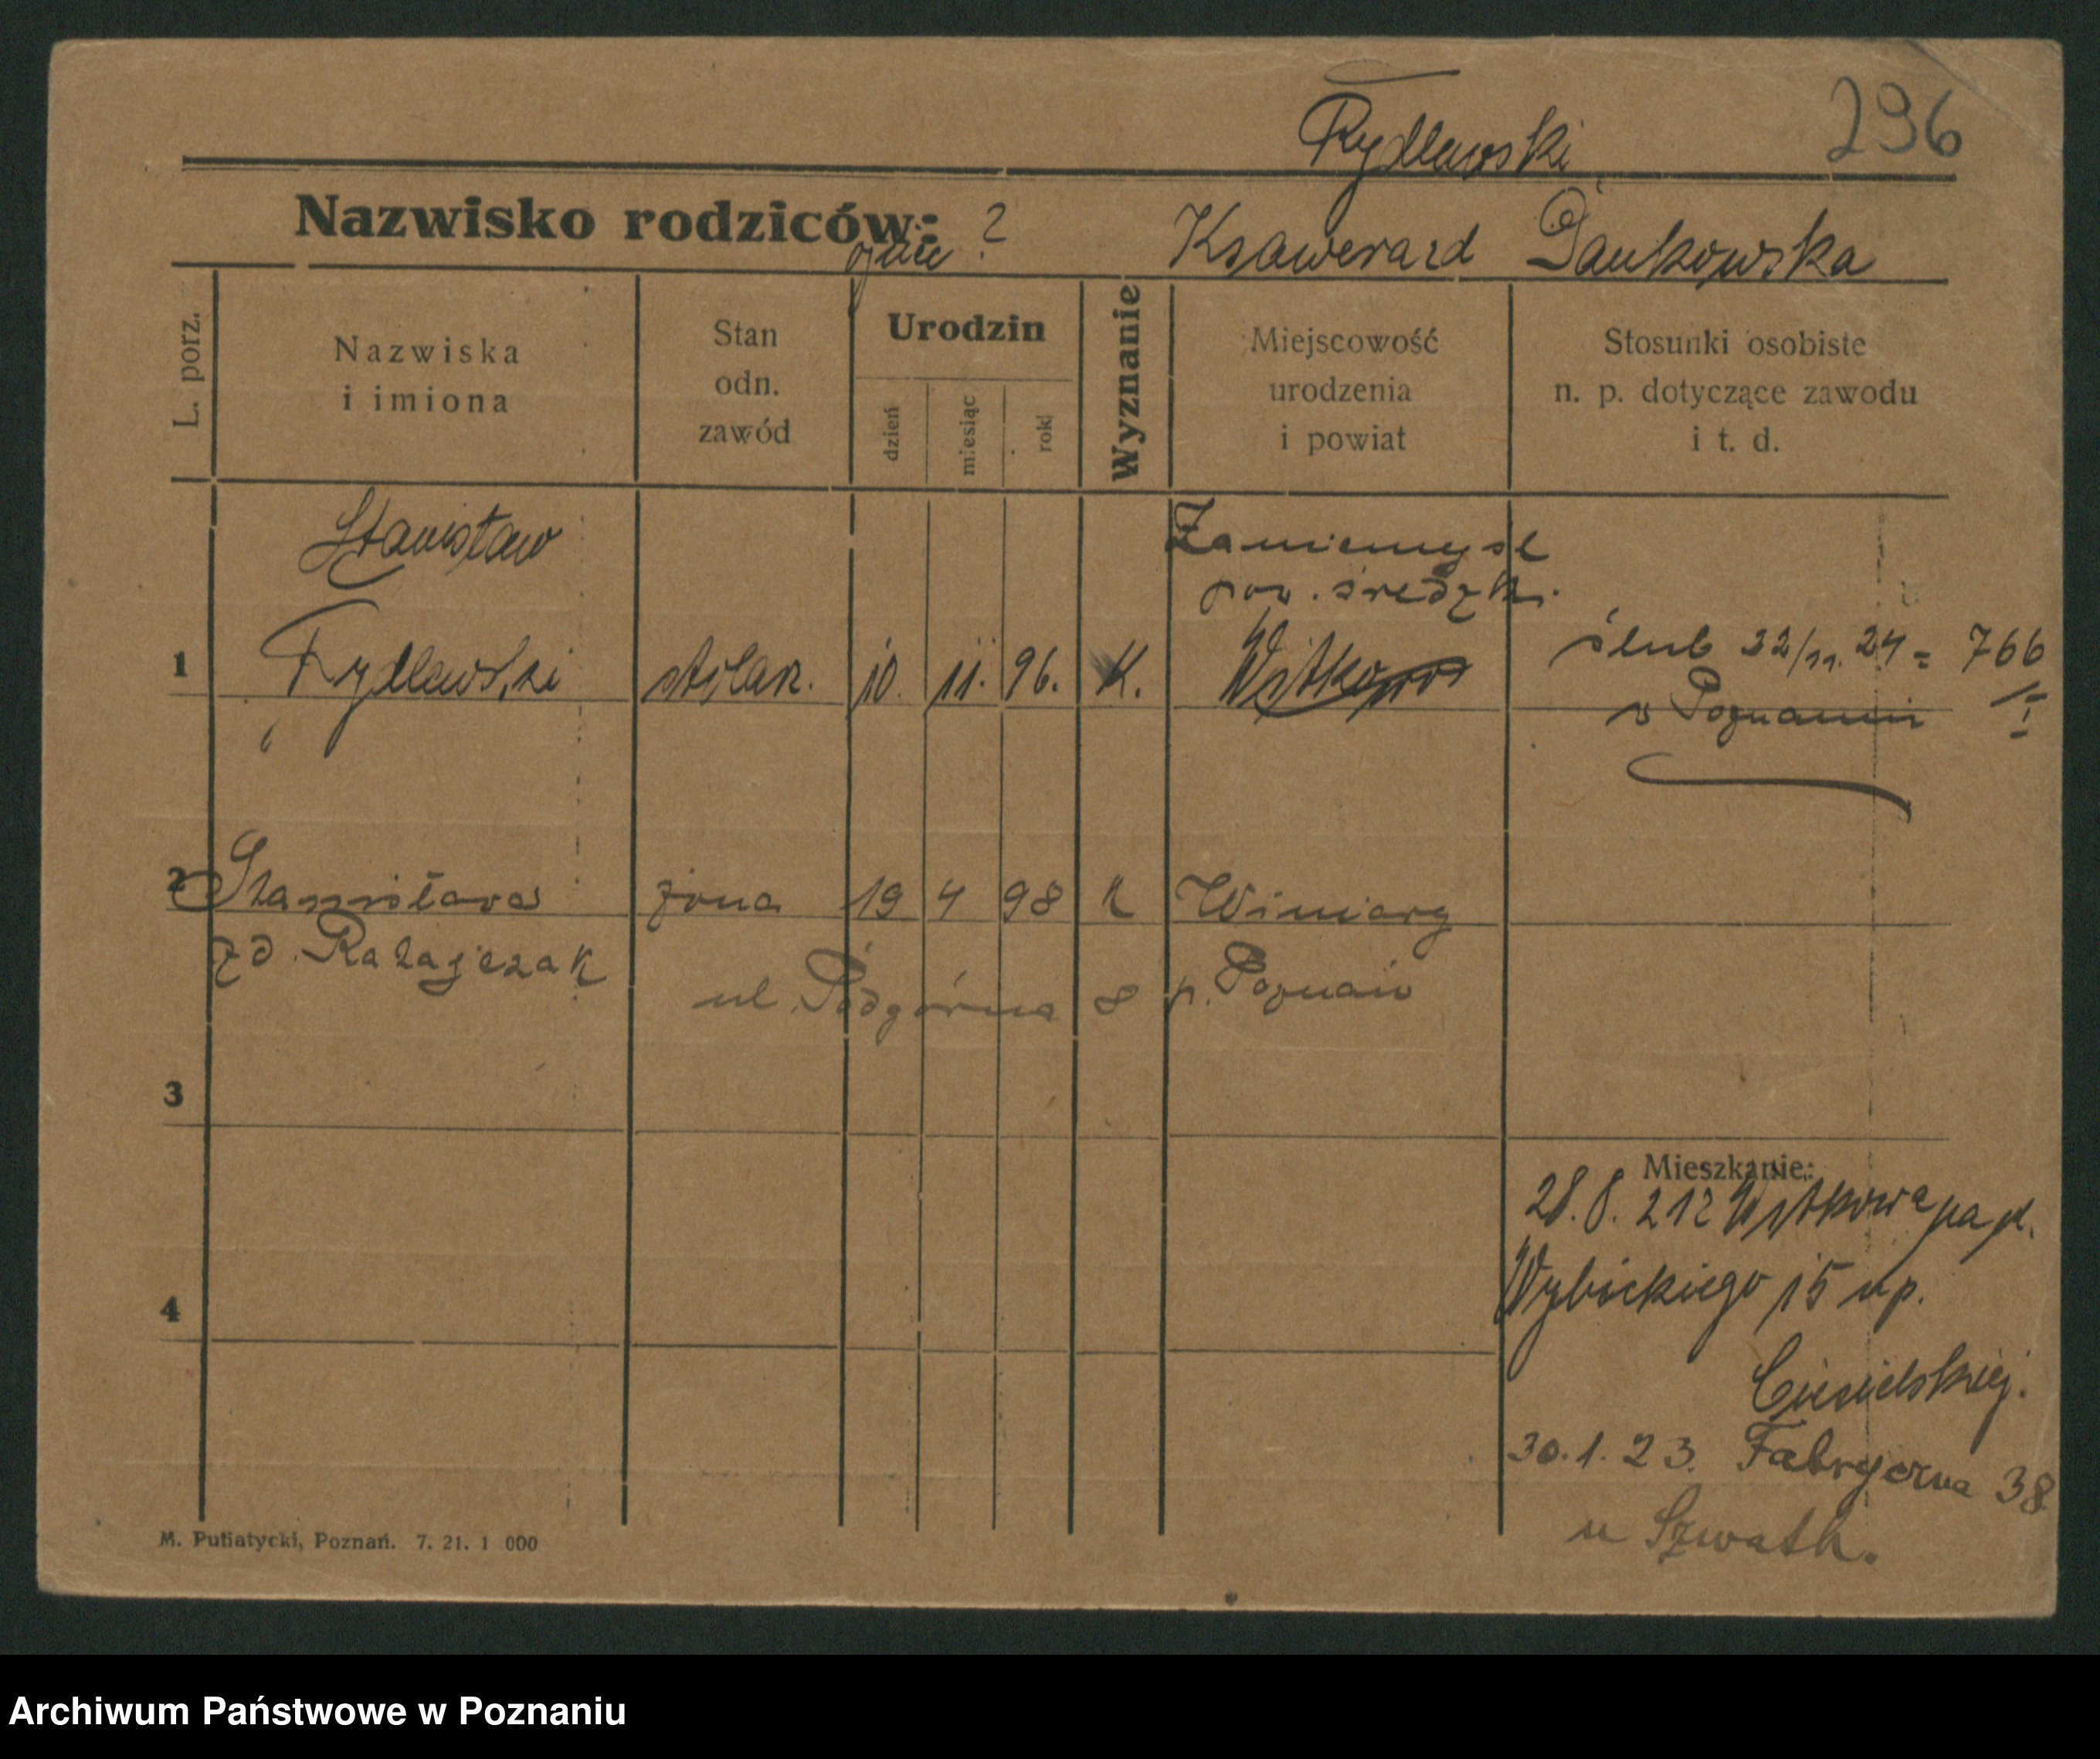 Rydlewski 296
Nazwisko rodziców: ? Ksawera zd Dankowska
L. porz.
Nazwiska
i imiona
Stan
odn.
zawód
Urodzin
dzień
miesiąc
rok
Wyznanie
Miejscowość
urodzenia
i powiat
Stosunki osobiste
n. p. dotyczące zawodu
i t. d.
Stanisław
Zaniemyśl
pow. średzki.
1 Rydlewski stolarz. 10. 11. 96. K. Witkowo
ślub 22/11. 24 = 766
w Poznaniu I
2 Stanisława żona 19 4 98 K Winiary
zd. Ratajczak p. Poznań
ul. Podgórna 8
3
Mieszkanie:
28. 8. 21 z Witkowa na pl.
4 Wybickiego 15 u p.
Ciesielskiej.
30. 1. 23. Fabryczna 38
u Szwath.
M. Putiatycki, Poznań. 7. 21. 1 000
Archiwum Państwowe w Poznaniu